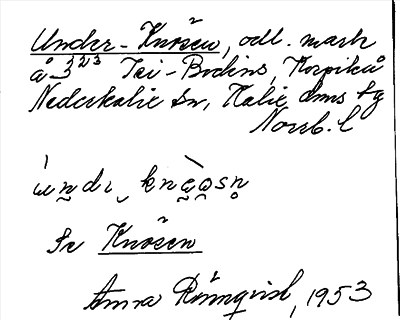 Under-Knösen, odl. mark
å 3²³ Tei-Bodins, Korpikå
Nederkalix sn, Kalix dms tg
Norrb. l
ùndr knéosn
Se Knösen
Anna Rönnqvist, 1953